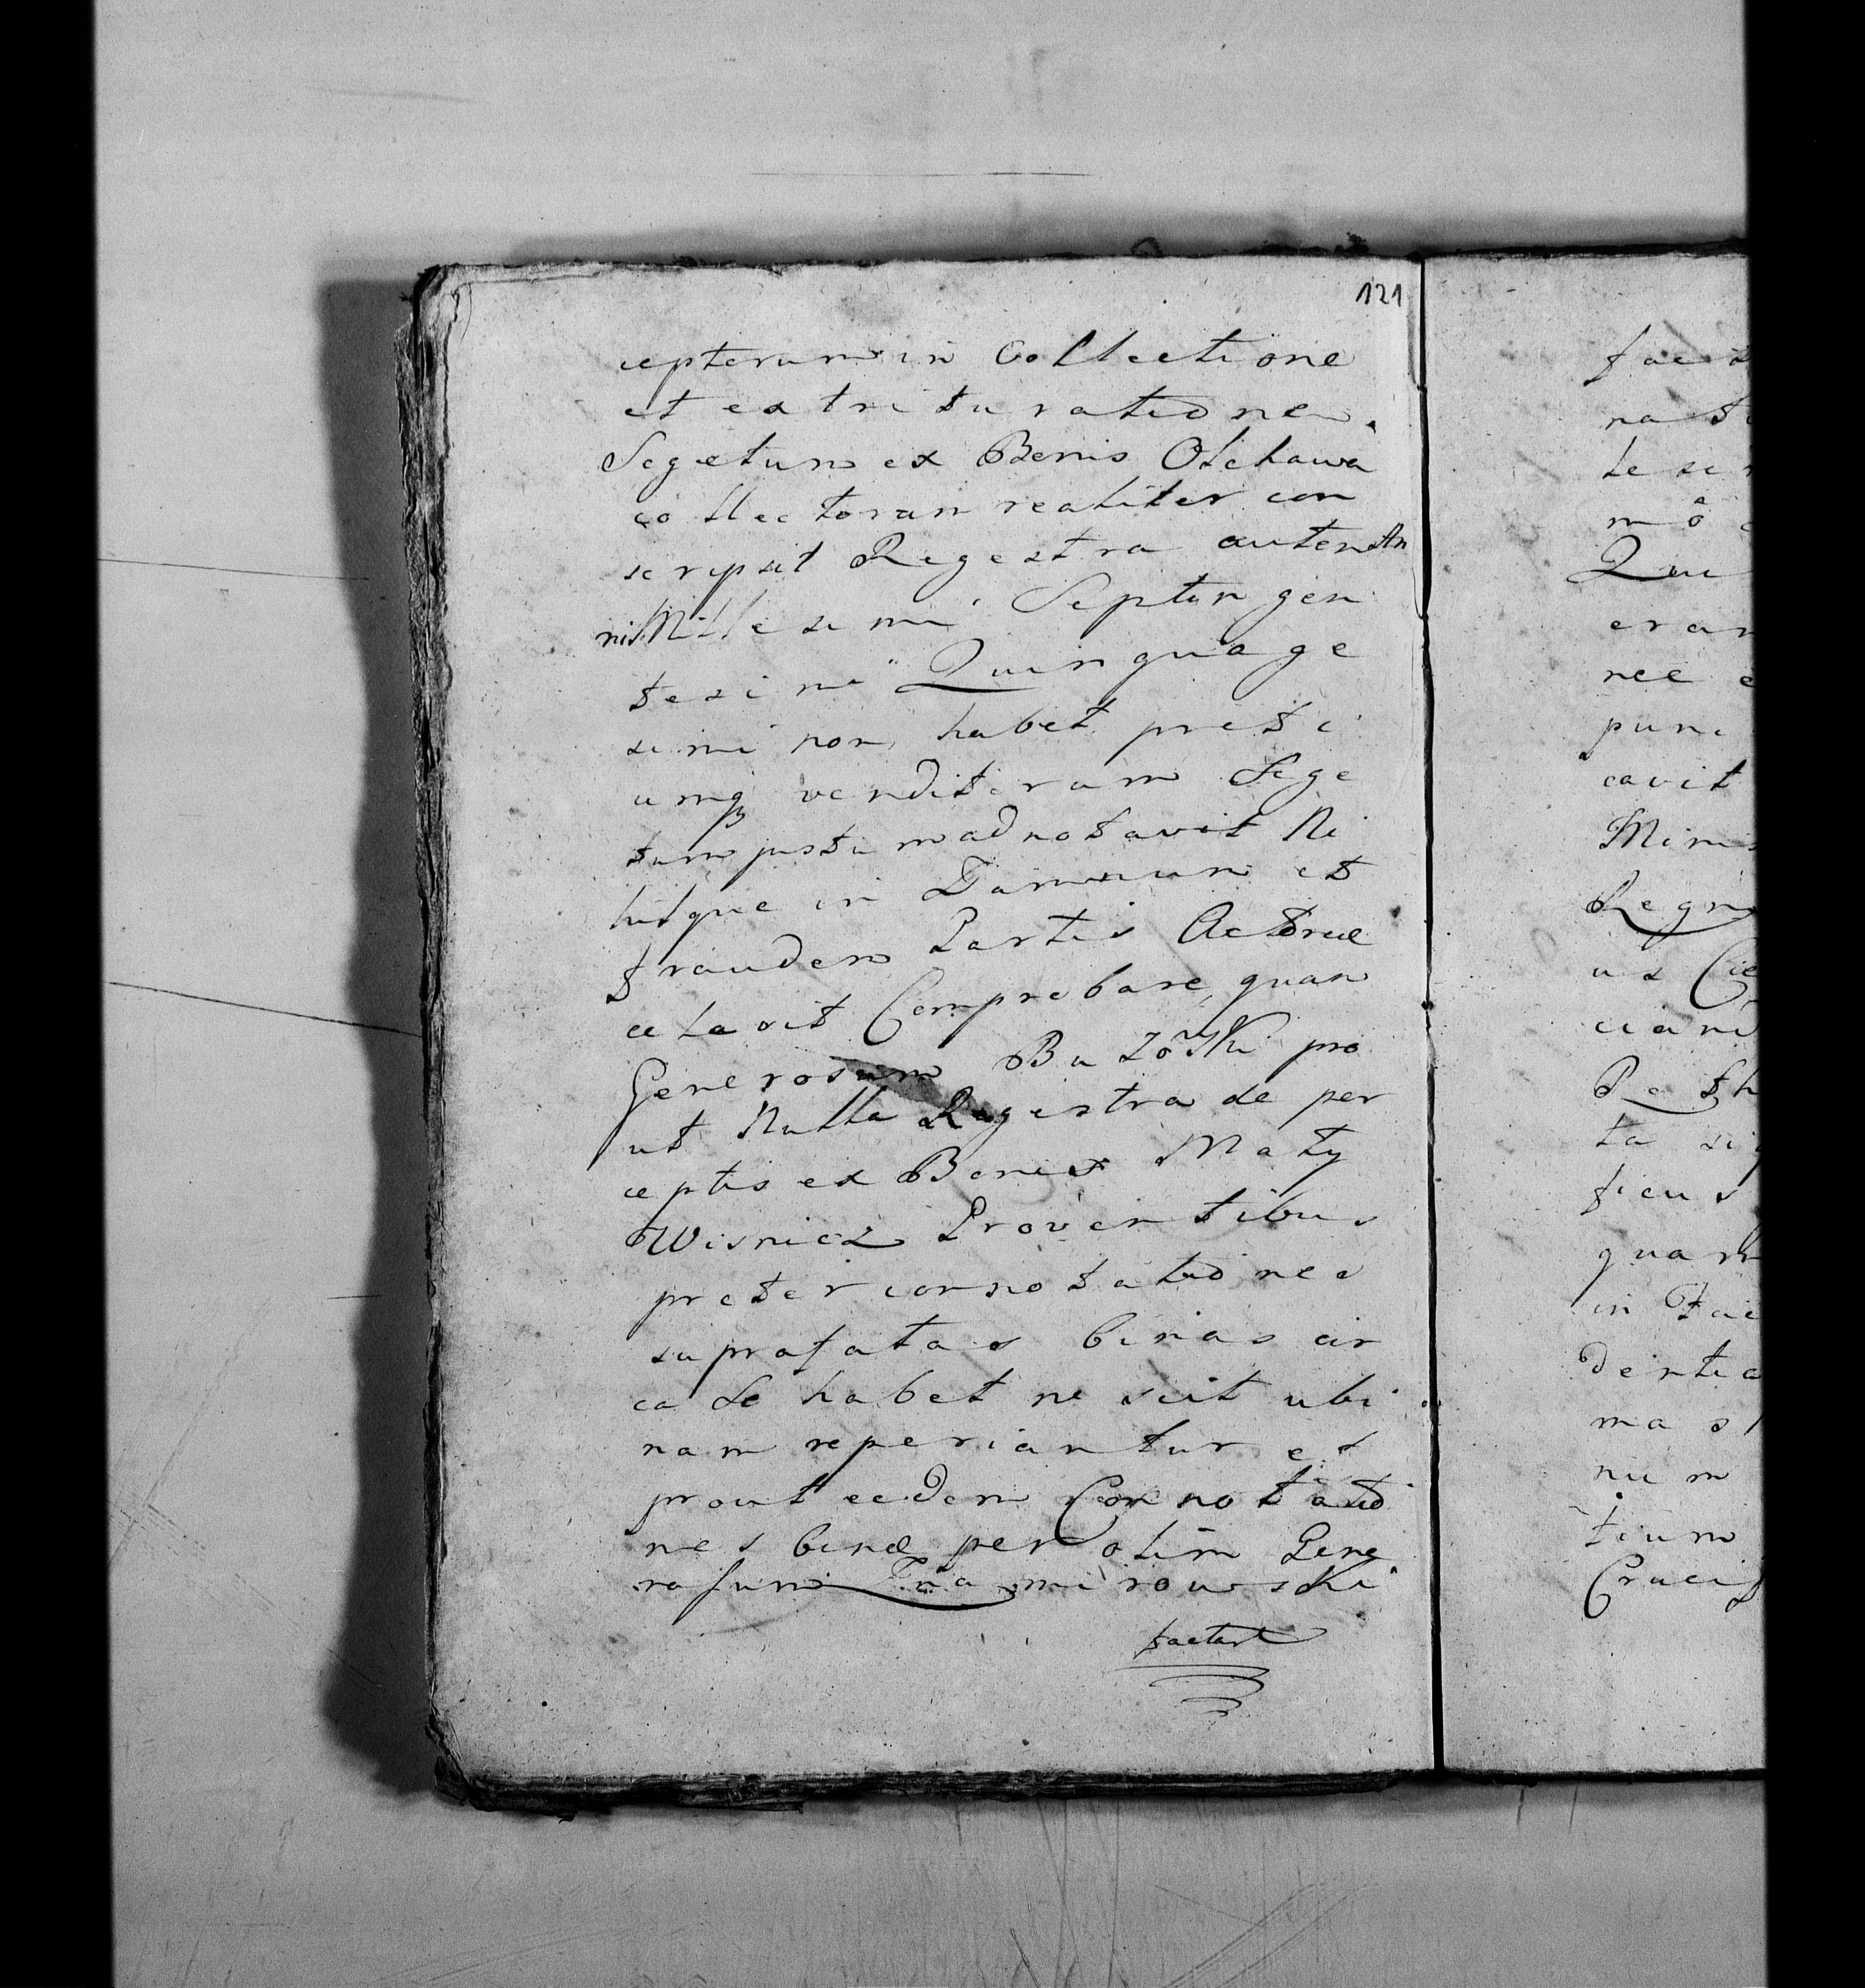 121
ceptorum in Collectione
et extrituratione
Segetum ex Bonis Olchawa
collectoram realiter con
scripsit Regestra autem An
nis Millesimi Septingen
tesimi Quinquage
simi non habet preti
umq venditarum Sege
tum justum adnotavit Ni
hilque in Damnum et
fraudem Partis Actoreæ
celavit Comprobare, quan
Generosum pro
ut Nulla Regestra de per
ceptis ex Bonis Maty
Wisnicz Proventibus
preter connotationes
suprafatas binas cir
ca Se habet ne scit ubi
nam reperiantur et
prout eedem Connotatio
nes binæ per olim Gene
rosum
factart
fact
na
le se
mô
Qui
eran
nec e
pun
cavit
Minis
Regn
us Cie
ciani
ta sig
ficus
quam
in Fac
dentia
mas
num
tium
Crucif